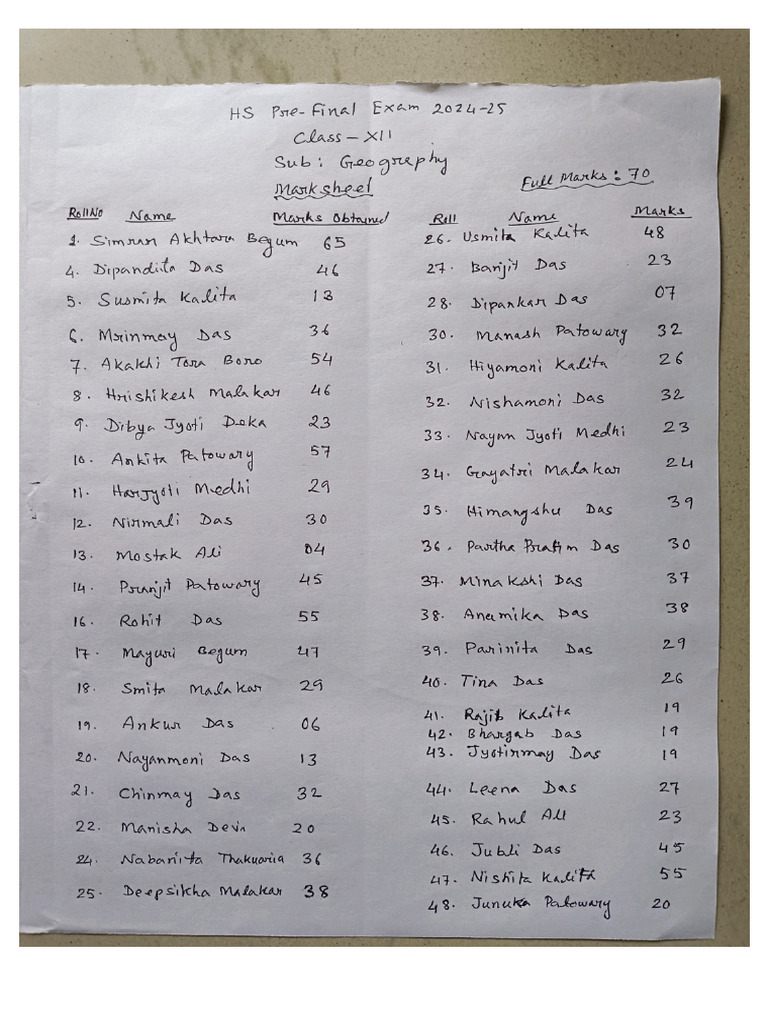 HS Pre-Final Exam 2024-25
Class-XII
Sub: Geography
Marksheet
Full Marks: 70
Roll No Name Marks Obtained
1. Simran Akhtara Begum 65
4. Dipandita Das 46
5. Susmita Kalita 13
6. Mrinmay Das 36
7. Akakhi Tora Boro 54
8. Hrishikesh Malakar 46
9. Dibya Jyoti Deka 23
10. Ankita Patowary 57
11. Harjyoti Medhi 29
12. Nirmali Das 30
13. Mostak Ali 04
14. Pranjit Patowary 45
16. Rohit Das 55
17. Mayuri Begum 47
18. Smita Malakar 29
19. Ankur Das 06
20. Nayanmoni Das 13
21. Chinmay Das 32
22. Manisha Devi 20
24. Nabanita Thakuaria 36
25. Deepsikha Malakar 38
Roll Name Marks
26. Usmita Kalita 48
27. Banjit Das 23
28. Dipankar Das 07
30. Manash Patowary 32
31. Hiyamoni Kalita 26
32. Nishamoni Das 32
33. Nayan Jyoti Medhi 23
34. Gayatri Malakar 24
35. Himangshu Das 39
36. Partha Pratim Das 30
37. Minakshi Das 37
38. Anamika Das 38
39. Parinita Das 29
40. Tina Das 26
41. Rajib Kalita 19
42. Bhargab Das 19
43. Jyotirmay Das 19
44. Leena Das 27
45. Rahul Ali 23
46. Jubli Das 45
47. Nishita Kalita 55
48. Junuka Patowary 20